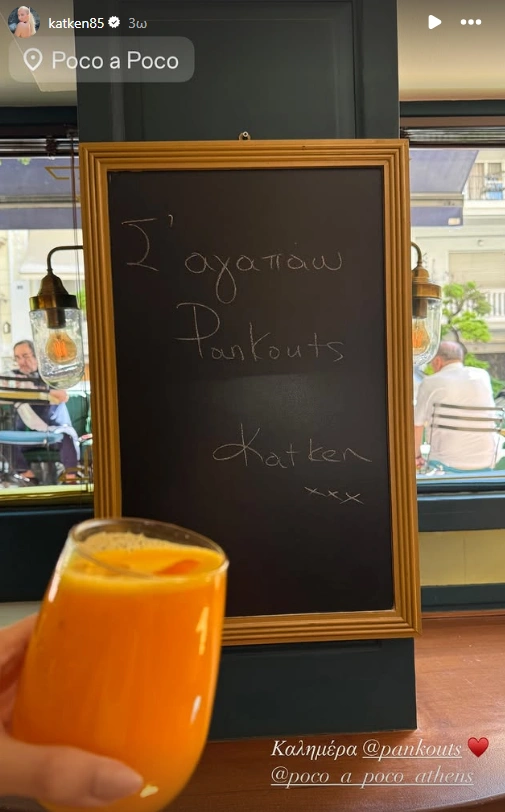 katken85 3ω
Poco a Poco
Σ' αγαπάω
Pankouts
Katken
xxx
Καλημέρα @pankouts ❤️
@poco_a_poco_athens